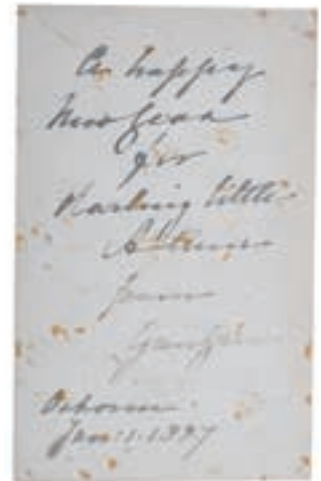 A happy
New Year
for
Darling little
from
Gan Gan
Osborne.
Jan: 1. 1897